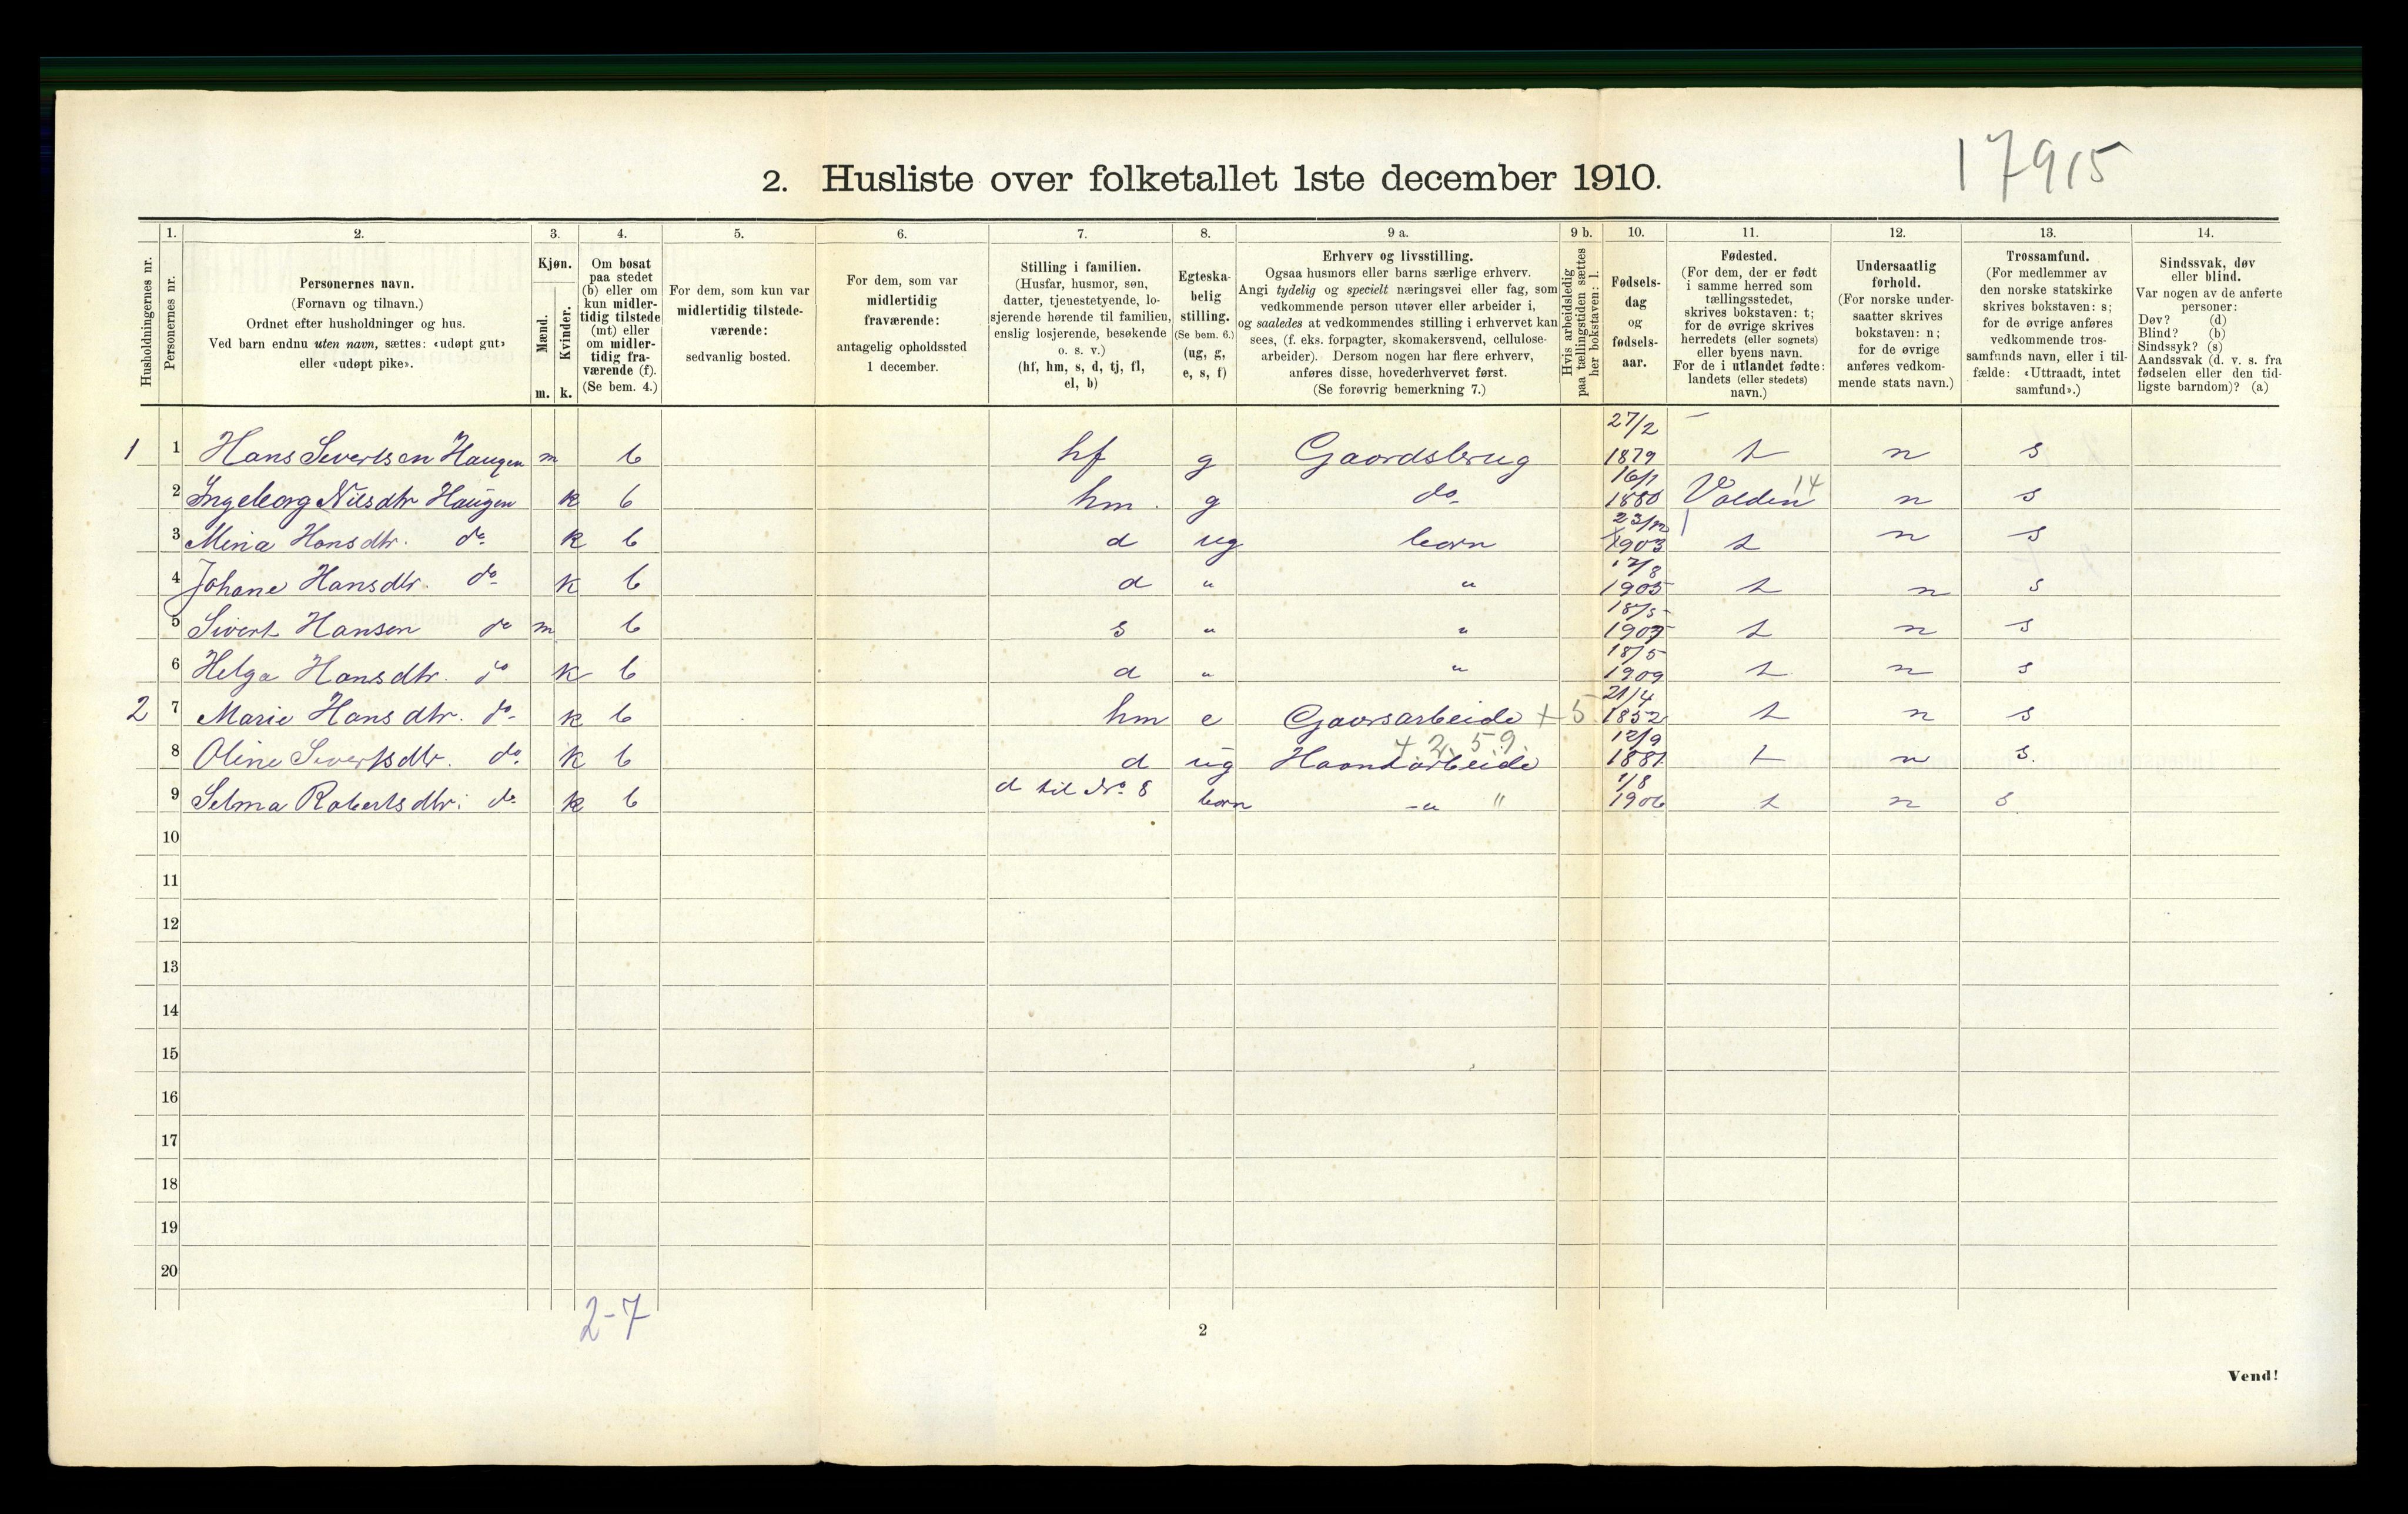 17915
2. Husliste over folketallet 1ste december 1910.
Husholdningernes nr.
1.
Personernes nr.
2.
Personernes navn.
(Fornavn og tilnavn.)
Ordnet efter husholdninger og hus.
Ved barn endnu uten navn, sættes: «udøpt gut»
eller «udøpt pike».
3.
Kjøn.
Mænd.
Kvinder.
m. k.
4.
Om bosat
paa stedet
(b) eller om
kun midler-
tidig tilstede
(mt) eller
om midler-
tidig fra-
værende (f).
(Se bem. 4.)
5.
For dem, som kun var
midlertidig tilstede-
værende:
sedvanlig bosted.
6.
For dem, som var
midlertidig
fraværende:
antagelig opholdssted
1 december.
7.
Stilling i familien.
(Husfar, husmor, søn,
datter, tjenestetyende, lo-
sjerende hørende til familien,
enslig losjerende, besøkende
o. s. v.)
(hf, hm, s, d, tj, fl,
el, b)
8.
Egteska-
belig
stilling.
(Se bem. 6.)
(ug, g,
e, s, f)
9 a.
Erhverv og livsstilling.
Ogsaa husmors eller barns særlige erhverv.
Angi tydelig og specielt næringsvei eller fag, som
vedkommende person utøver eller arbeider i,
og saaledes at vedkommendes stilling i erhvervet kan
sees, (f. eks. forpagter, skomakersvend, cellulose-
arbeider). Dersom nogen har flere erhverv,
anføres disse, hovederhvervet først.
(Se forøvrig bemerkning 7.)
9 b.
Hvis arbeidsledig
paa tællingstiden sættes
her bokstaven: l.
10.
Fødsels-
dag
og
fødsels-
aar.
11.
Fødested.
(For dem, der er født
i samme herred som
tællingsstedet,
skrives bokstaven: t;
for de øvrige skrives
herredets (eller sognets)
eller byens navn.
For de i utlandet fødte:
landets (eller stedets)
navn.)
12.
Undersaatlig
forhold.
(For norske under-
saatter skrives
bokstaven: n;
for de øvrige
anføres vedkom-
mende stats navn.)
13.
Trossamfund.
(For medlemmer av
den norske statskirke
skrives bokstaven: s;
for de øvrige anføres
vedkommende tros-
samfunds navn, eller i til-
fælde: «Uttraadt, intet
samfund».)
14.
Sindssvak, døv
eller blind.
Var nogen av de anførte
personer:
Døv? (d)
Blind? (b)
Sindssyk? (s)
Aandssvak (d. v. s. fra
fødselen eller den tid-
ligste barndom)? (a)
1 1 Hans Severtsen Haugen m b hf g Gaardsbrug 27/2 1879 t n s
2 Ingeborg Nilsdtr Haugen k b hm g do 16/1 1880 Volden 14 n s
3 Mina Hansdtr. do k b d ug barn 23/12 1903 t n s
4 Johane Hansdtr. do k b d " " 17/8 1905 t n s
5 Sivert Hansen do m b s " " 18/5 1907 t n s
6 Helga Hansdtr. do k b d " " 18/5 1909 t n s
2 7 Marie Hansdtr. do k b hm e Gaarsarbeide + 5 21/4 1852 t n s
8 Oline Sivertsdtr. do k b d ug Haandarbeide + 2. 5 9. 12/9 1881 t n s.
9 Selma Robertsdtr. do k b d til No 8 barn - " " 1/8 1906 t n s
10
11
12
13
14
15
16
17
18
19
20
2-7
2
Vend!